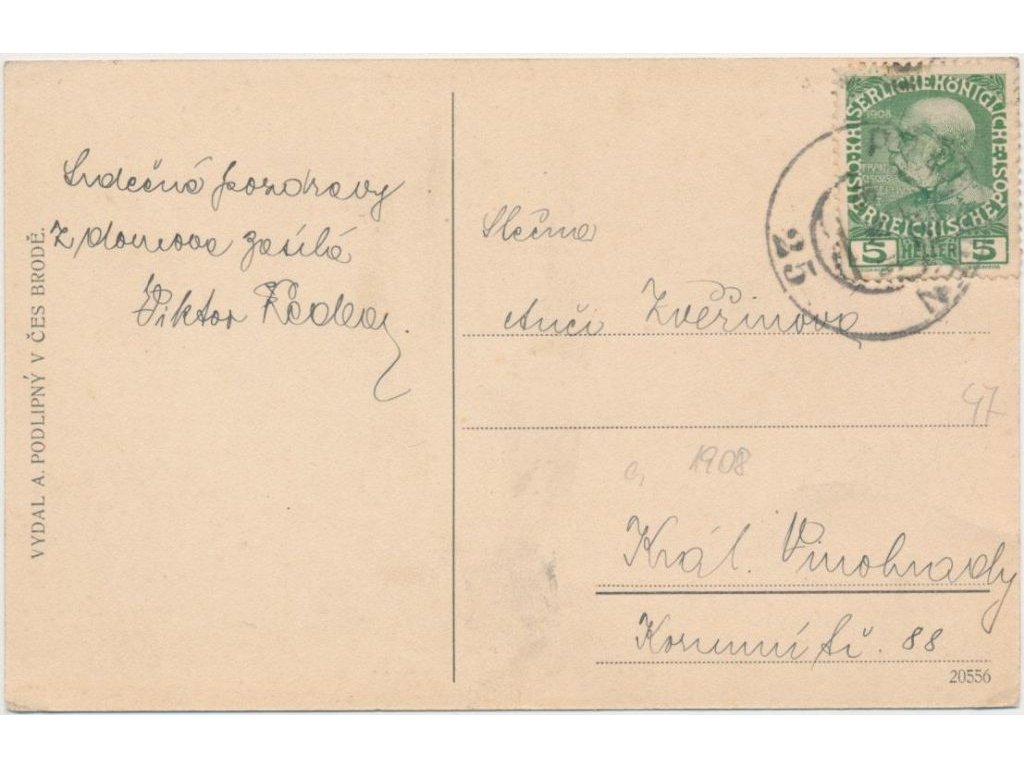 VYDAL A. PODLIPNÝ V ČES BRODĚ.
Srdečné pozdravy
z domova zasílá
Viktor
Slečna
Anči Zvěřinova
47
1908
Král. Vinohrady
Korunní tř. 88
20556
KAISERLICHE KÖNIGLICHE
ÖSTERREICHISCHE POST
1908
5 HELLER 5
25